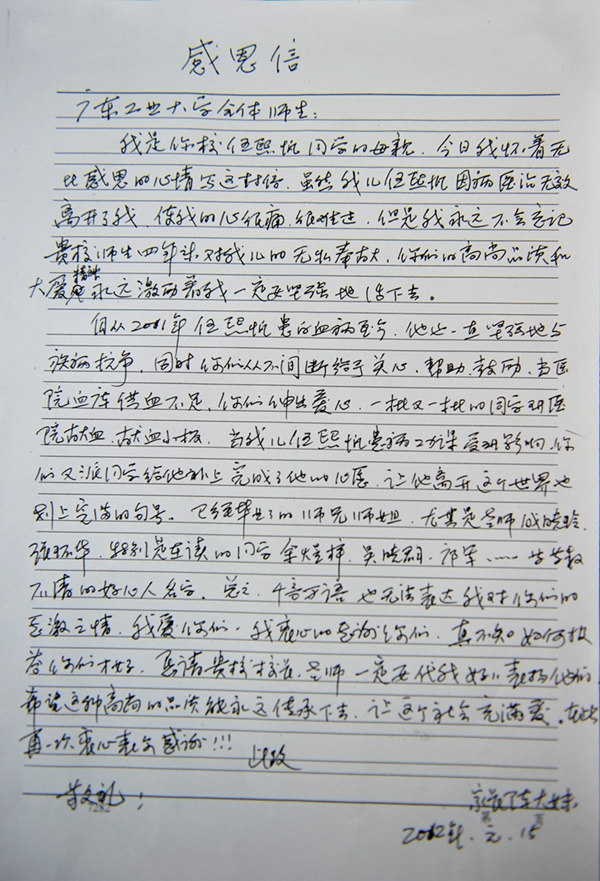 感恩信
广东工业大学全体师生:
我是你校伍熙帆同学的母亲,今日我怀着无
比感恩的心情写这封信。虽然我儿伍熙帆因病医治无效
离开了我,使我的心很痛,很难过,但是我永远不会忘记
贵校师生四年来对我儿的无私奉献,你们的高尚品质和
大爱精神永远激励着我一定要坚强地活下去。
自从2011年伍熙帆患的血病至今,他也一直坚强地与
疾病抗争,同时你们从不间断给予关心、帮助、鼓励,当医
院血库供血不足,你们伸出爱心,一批又一批的同学到医
院献血、献血小板,当我儿伍熙帆患病功课受到影响,你
们又派同学给他补上完成了他的心愿,让他离开这个世界也
划上完满的句号。已经毕业了的师兄师姐,尤其是老师成晓玲、
张环华,特别是在读的同学 吴晓 邓军……等等数
不清的好心人名字。总之,千言万语也无法表达我对你们的
感激之情,我爱你们,我衷心的感谢你们,真不知如何报
答你们才好,恳请贵校校长、老师一定要代我好好表扬他们,
希望这种高尚的品质能永远传承下去,让这个社会充满爱。在此
再一次衷心表示感谢!!!
此致
敬礼!
家长 陈大妹
2012年.元.15